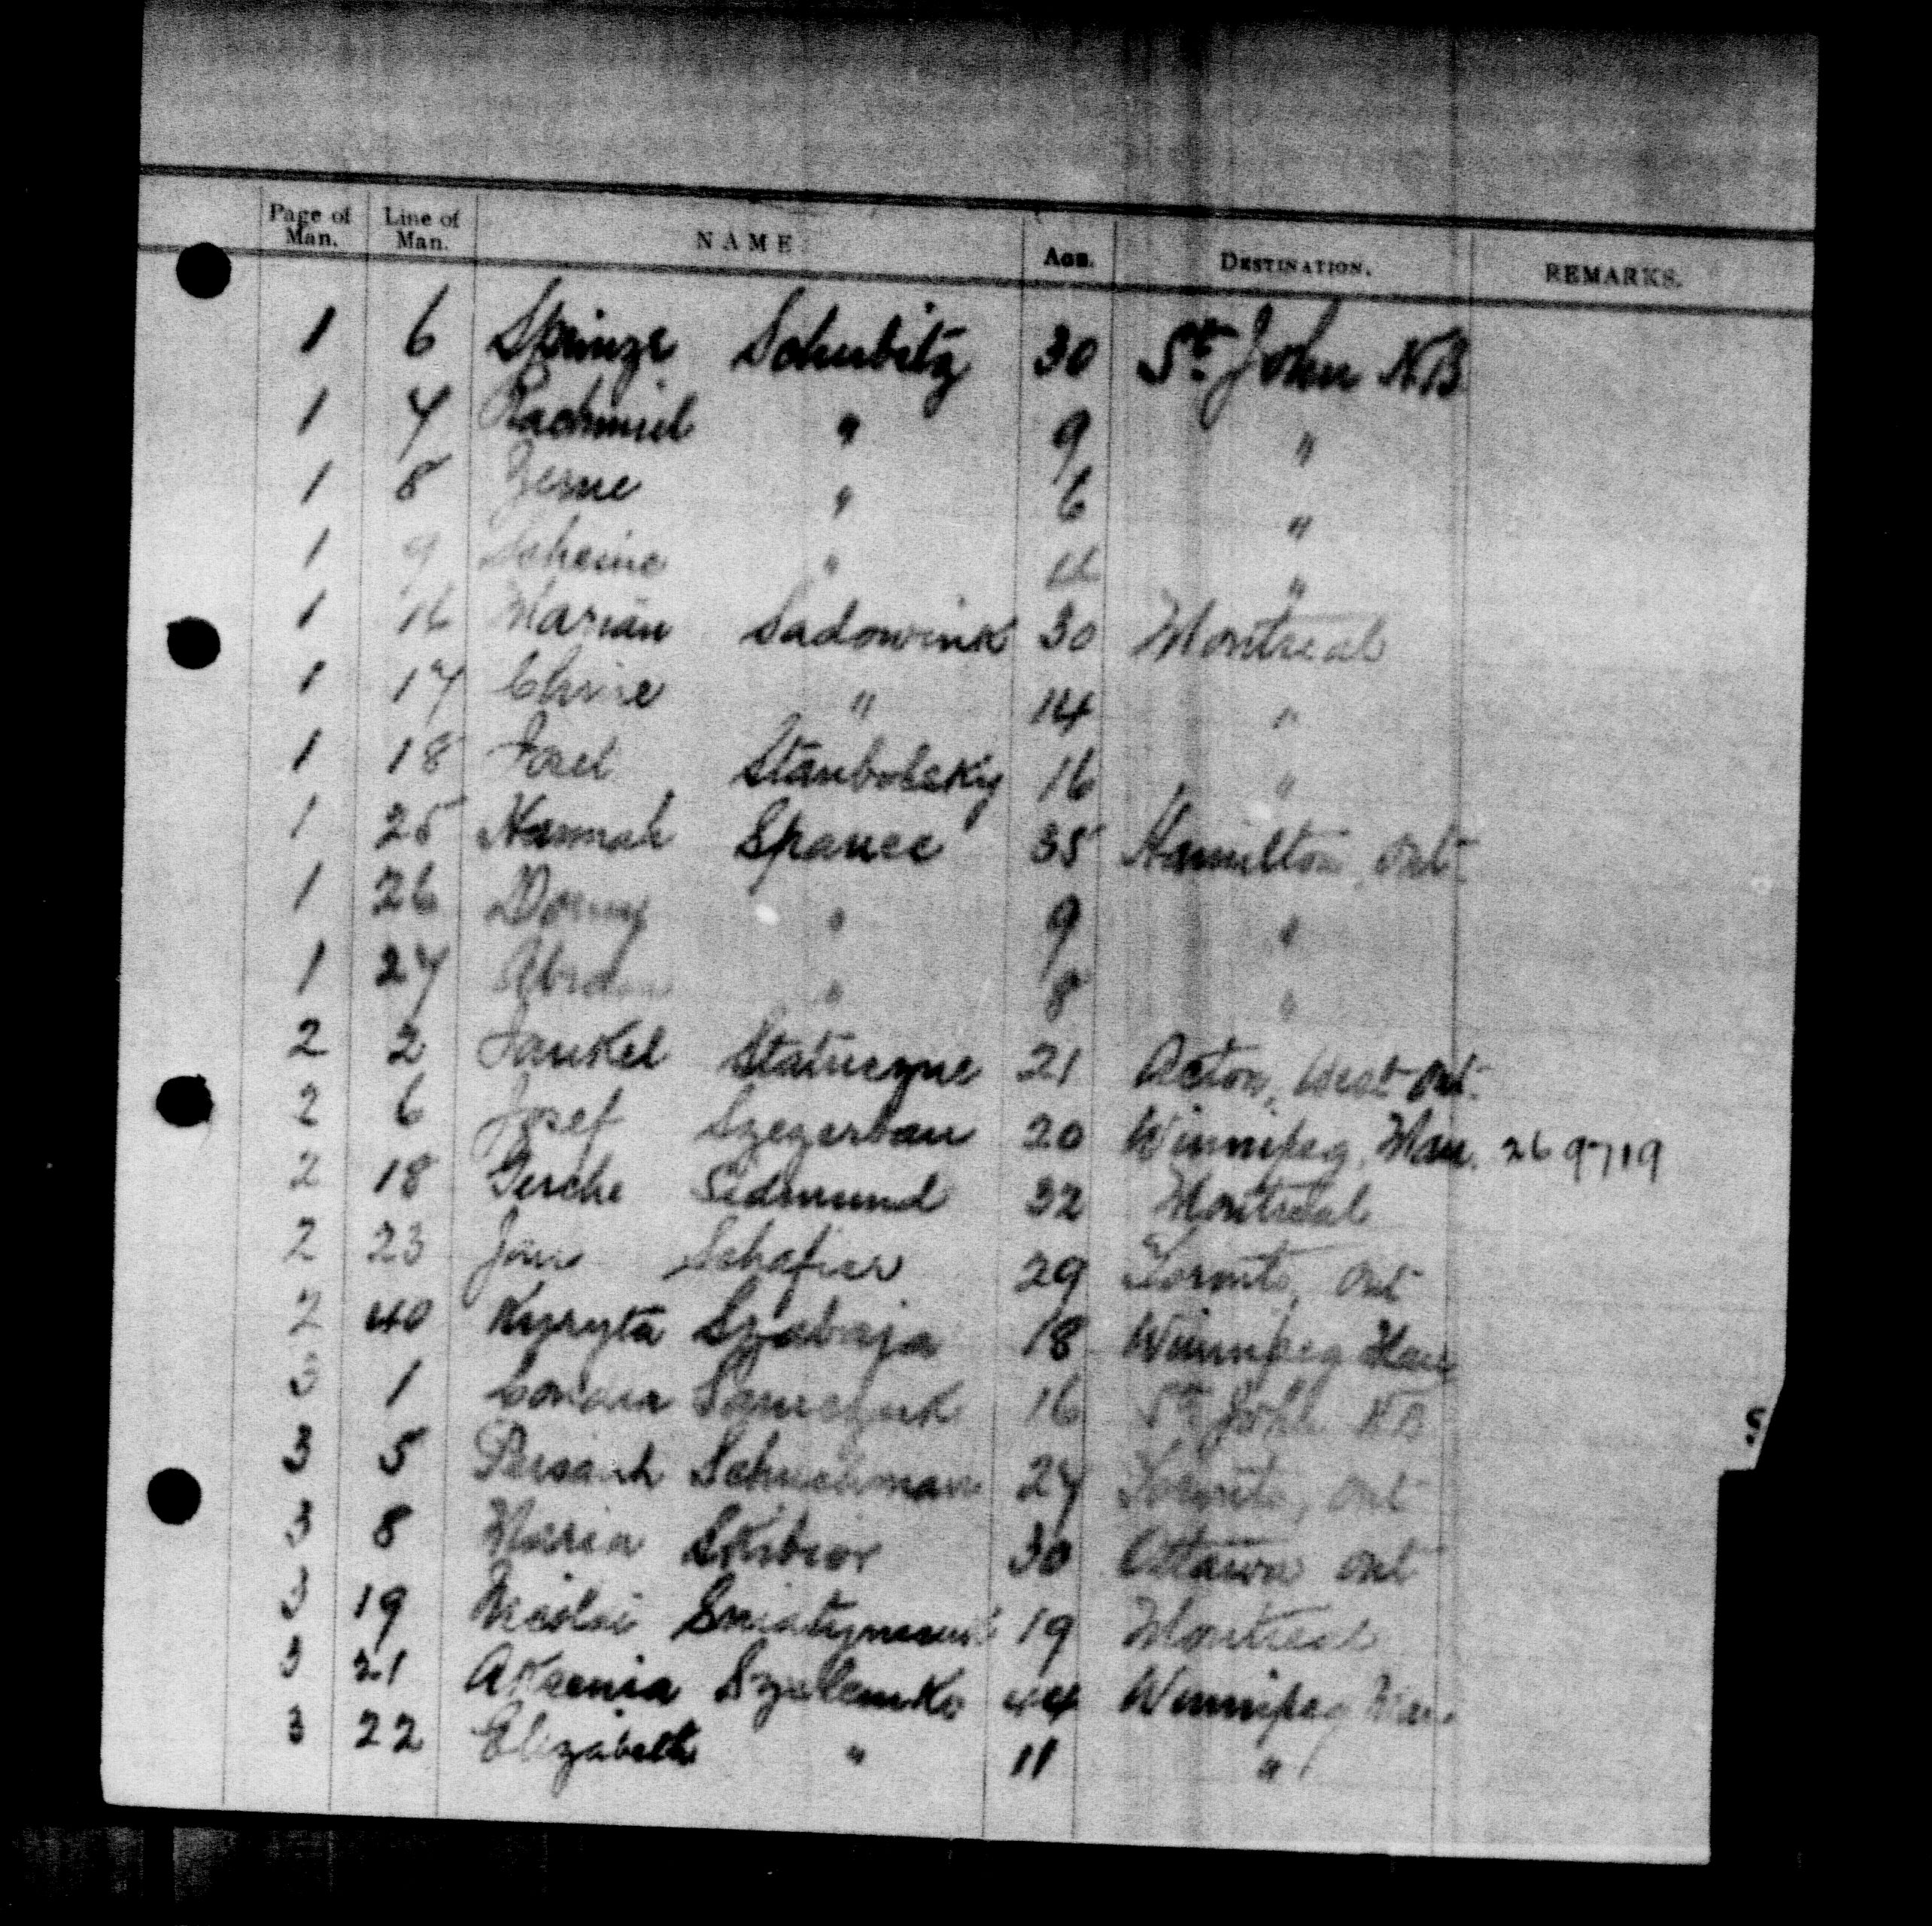 Page of Man. Line of Man. NAME AGE. DESTINATION. REMARKS.
1 6 Sprinze Schubitz 30 St. John NB
1 7 Rachmiel " 9 "
1 8 Zerne " 6 "
1 9 Scheine " "
1 16 Marian Sadowink 30 Montreal
1 17 " 14 "
1 18 Josel Stanbolsky 16 "
1 25 Hannah Spanee 35 Hamilton, Ont.
1 26 " 9 "
1 27 " 8 "
2 2 Jankel 21 Acton, West Ont.
2 6 Josef Szczerban 20 Winnipeg, Man. 269719
2 18 Gersche Sedmund 32 Montreal
2 23 29 Toronto, Ont
2 40 Kyryta Szabaja 18 Winnipeg Man
3 1 16 St. John NB
3 5 Schuchman 27 Toronto, Ont
3 8 Maria Skibior 30 Ottawa Ont
3 19 Nicolai 19 Montreal
3 21 Aksenia Szulemko 44 Winnipeg Man.
3 22 Elizabeth " 11 "
S